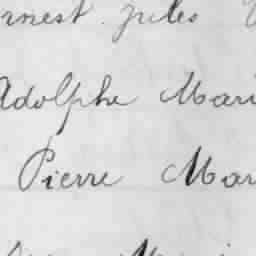 rnest Jules
Adolphe Mari
Pierre Mar